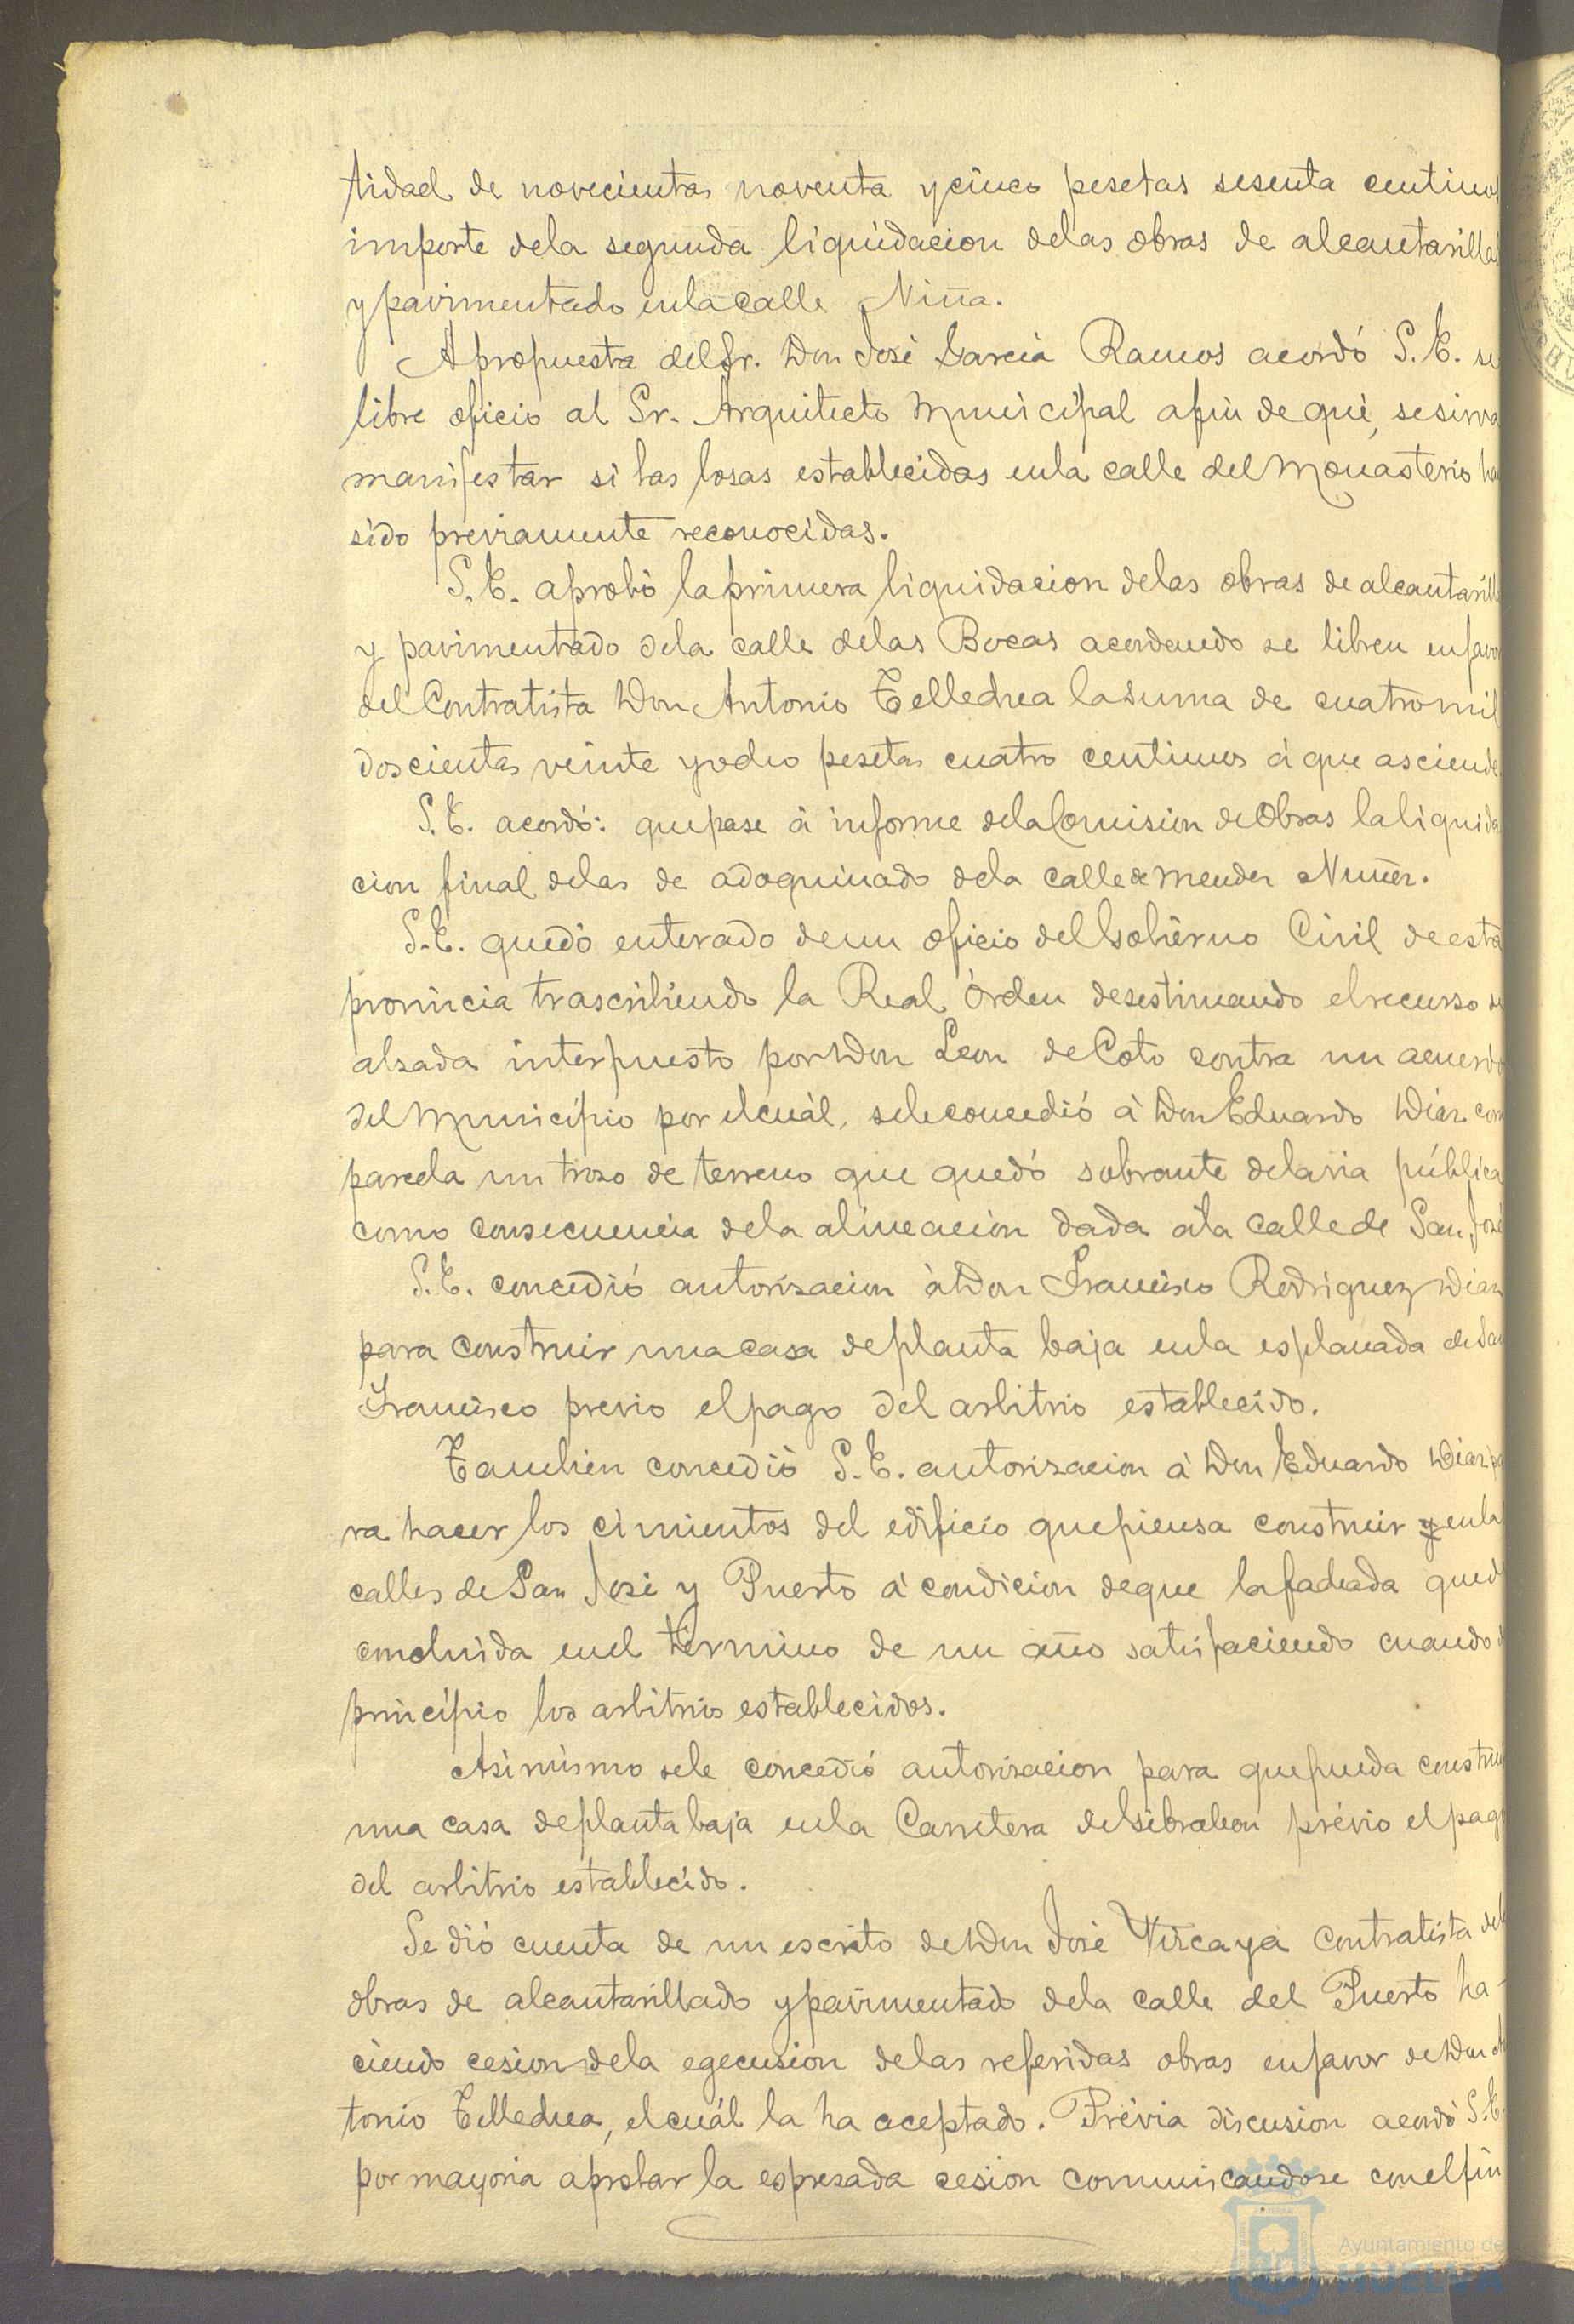 tidad de novecientas noventa y cinco pesetas sesenta centimos
importe dela segunda liquidacion delas obras de alcantarillado
y pavimentado enla calle Niña.
A propuesta del Sr. Don José Garcia Ramos acordó S.E. se
libre oficio al Sr. Arquitecto Municipal a fin de que, se sirva
manifestar si las losas establecidas enla calle del Monasterio han
sido previamente reconocidas.
S.E. aprobó la primera liquidacion delas obras de alcantarilla
y pavimentado dela calle delas Bocas acordando se libren en favor
del Contratista Don Antonio Tellechea la suma de cuatro mil
doscientas veinte y ocho pesetas cuatro centimos á que asciende
S.E. acordó: que pase á informe dela Comision de Obras la liquida
cion final delas de adoquinado dela calle de Mendez Nuñez.
S.E. quedó enterado de un oficio del Gobierno Civil de esta
provincia trascribiendo la Real Orden desestimando el recurso de
alzada interpuesto por Don Leon de Coto contra un acuerdo
del Municipio por el cuál, sele concedió á Don Eduardo Diaz como
parcela un trozo de terreno que quedó sobrante dela via pública
como consecuencia dela alineacion dada á la calle de San José
S.E. concedió autorizacion á Don Francisco Rodriguez Diaz
para construir una casa de planta baja enla esplanada de San
Francisco previo el pago del arbitrio establecido.
Tambien concedió S.E. autorizacion á Don Eduardo Diaz pa
ra hacer los cimientos del edificio que piensa construir y enla
calles de San José y Puerto á condicion de que la fachada quede
concluida enel termino de un año satisfaciendo cuando dé
principio los arbitrios establecidos.
Asimismo sele concedió autorizacion para que pueda construir
una casa de planta baja enla Carretera de Gibraleon prévio el pago
del arbitrio establecido.
Se dió cuenta de un escrito de Don José Vizcaya Contratista delas
obras de alcantarillado y pavimentado dela calle del Puerto ha-
ciendo cesion dela egecusion delas referidas obras en favor de Don An
tonio Tellechea, el cuál la ha aceptado. Prévia discusion acordó S.E.
por mayoria aprobar la espresada cesion comunicandose con el fin
Ayuntamiento de
HUELVA